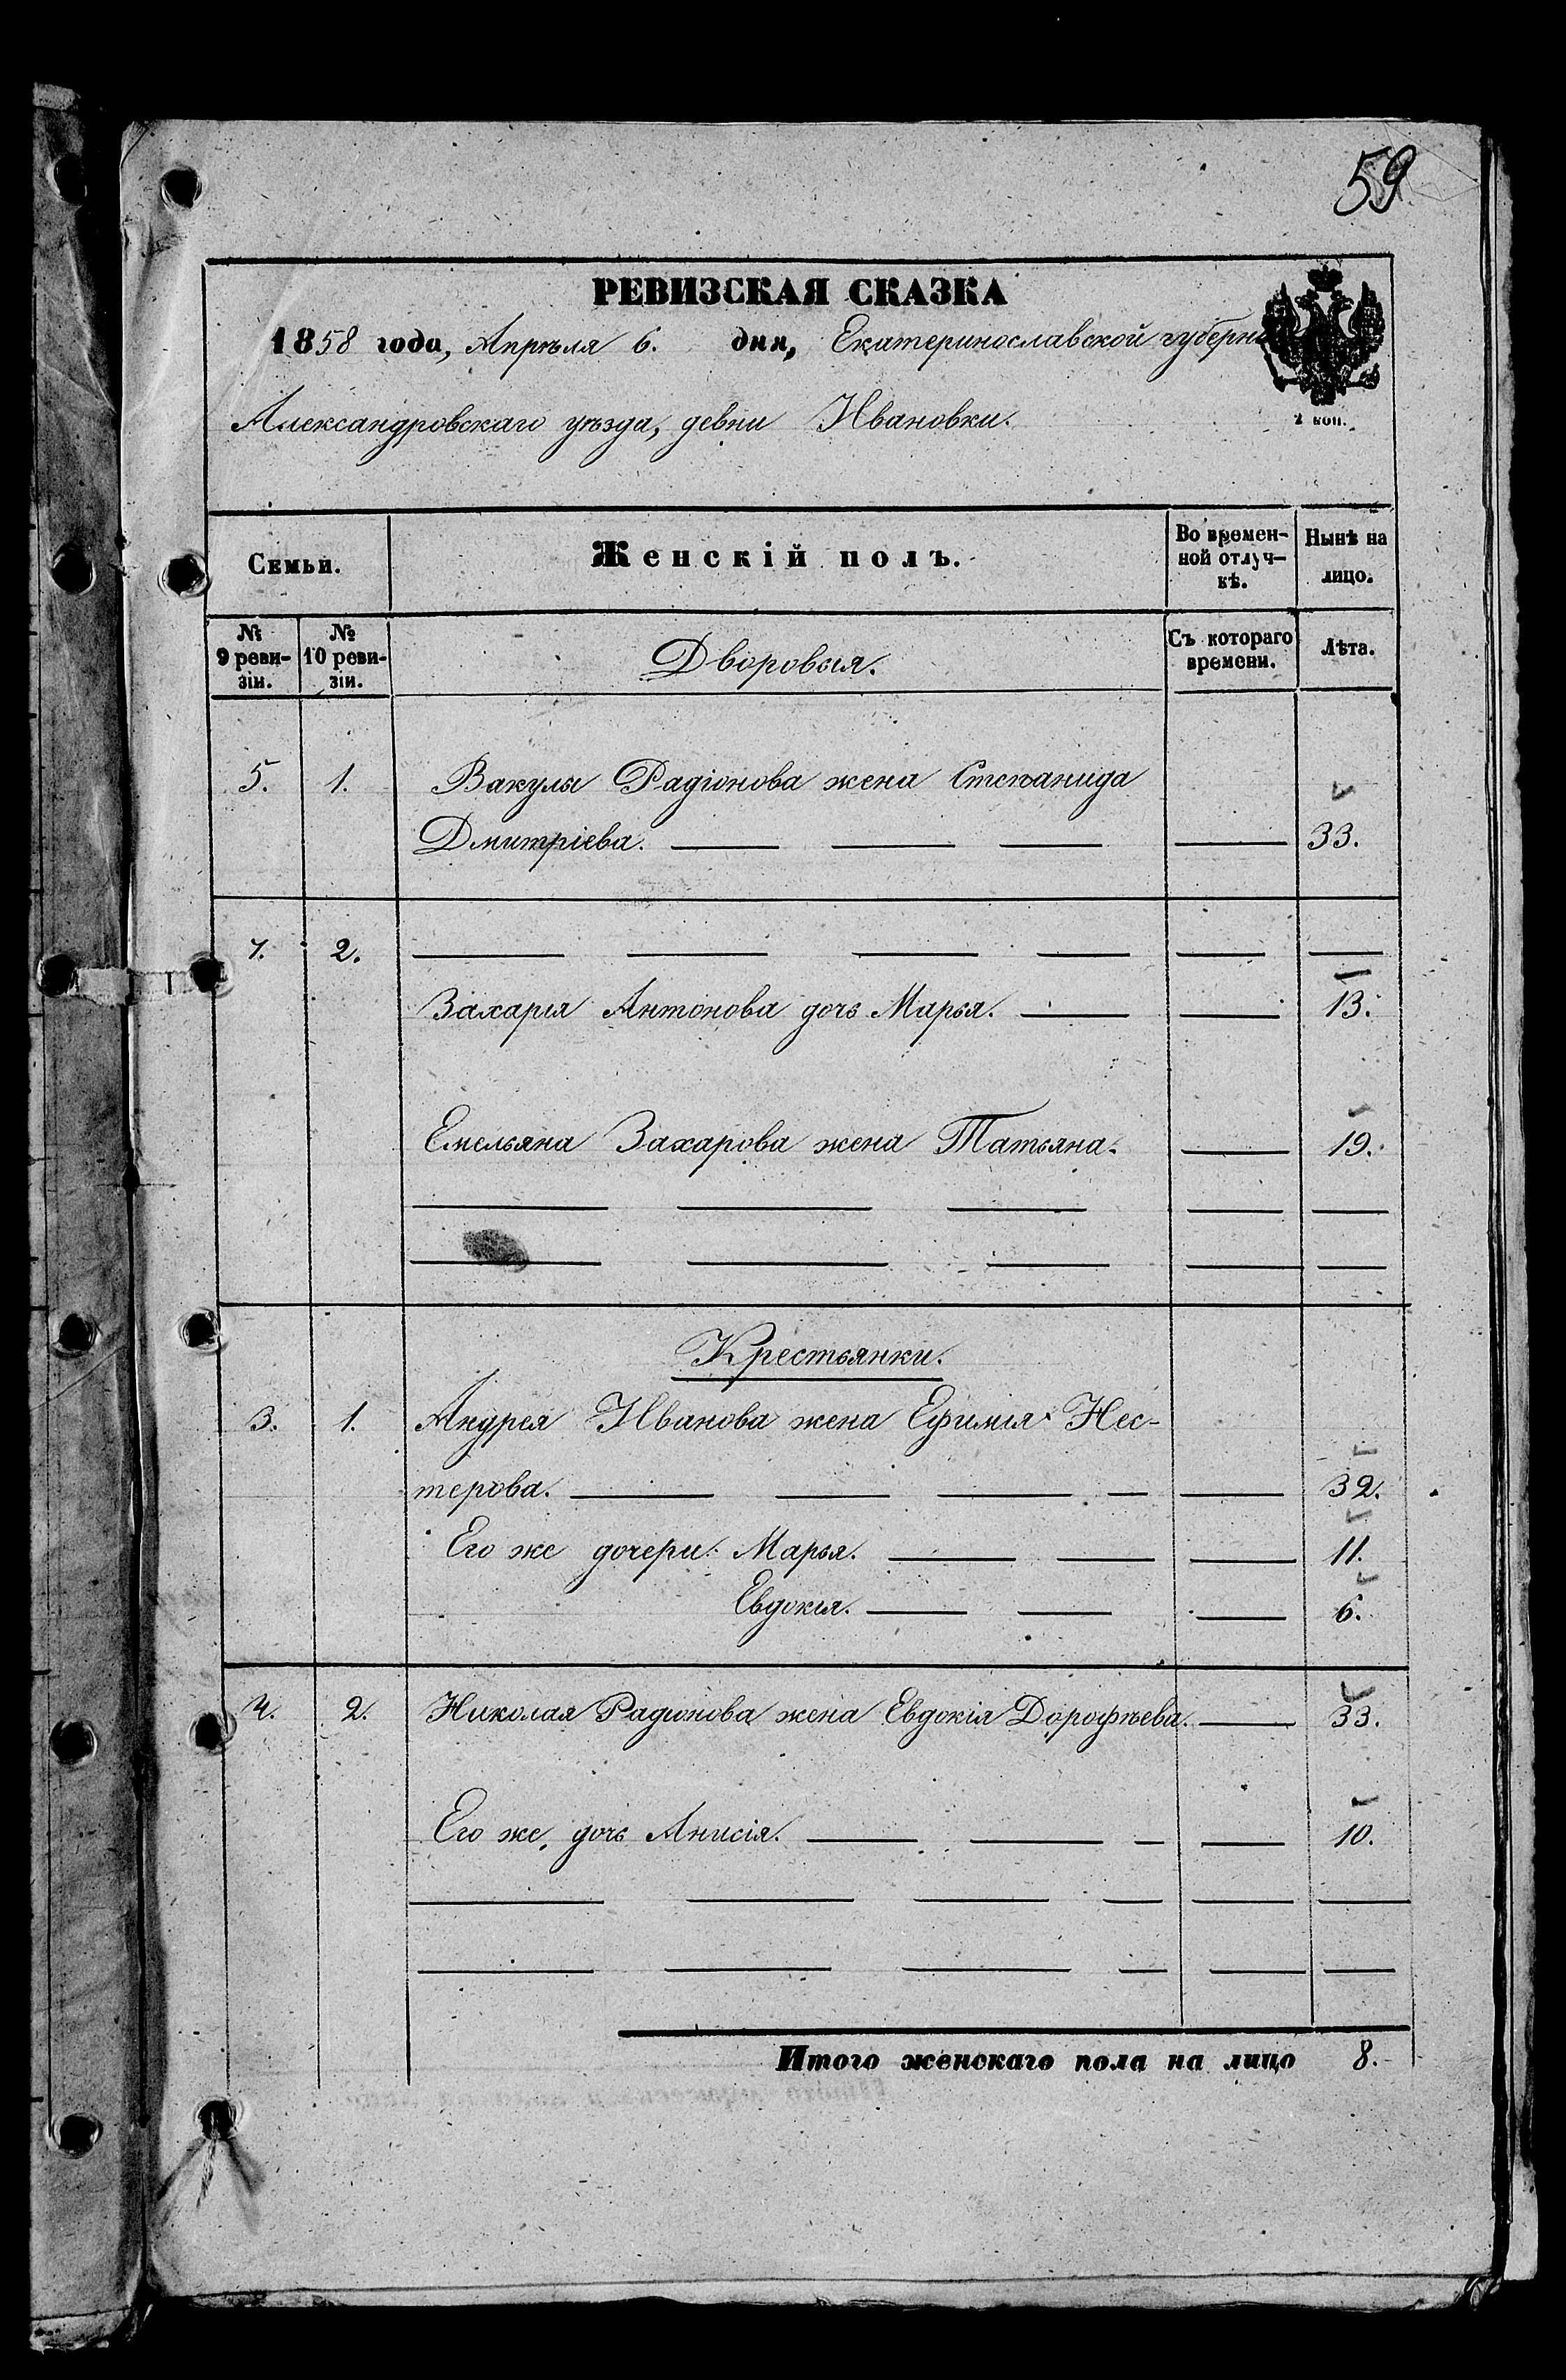 59
РЕВИЗСКАЯ СКАЗКА
1858 года, Апрѣля 6. дня, Екатеринославской губерніи
Александровскаго уѣзда, девни Ивановки.
2 коп.
Семьи.
Женскій полъ.
Во времен-
ной отлуч-
кѣ.
Нынѣ на
лицо.
№
9 реви-
зіи.
№
10 реви-
зіи.
Дворовыя.
Съ котораго
времени.
Лѣта.
5. 1. Вакулы Радіонова жена Степанида
Дмитріева. 33.
7. 2.
Захарія Антонова дочь Марья. 13.
Емельяна Захарова жена Татьяна. 19.
Крестьянки.
3. 1. Андрея Иванова жена Ефимія Нес-
терова. 32.
Его же дочери: Марья. 11.
Евдокія. 6.
4. 2. Николая Радіонова жена Евдокія Дорофѣева. 33.
Его же, дочь Анисія. 10.
Итого женскаго пола на лицо 8.